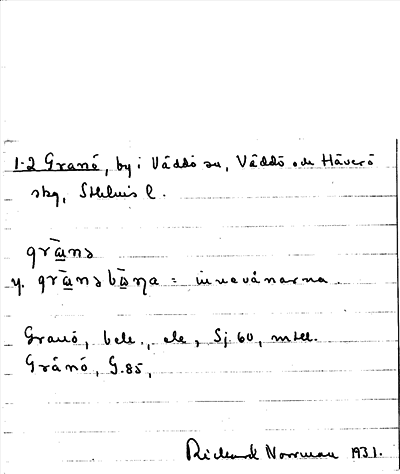 1-2 Granó, by i Väddö sn, Väddö och Häverö
skg, Sthlms l.
gräna
y. gränabäŋa = innevånarna
Granö, bebe., ele, Sj. 60, mtll.
Gränö, G. 85,
Rickard Norrman 1931.